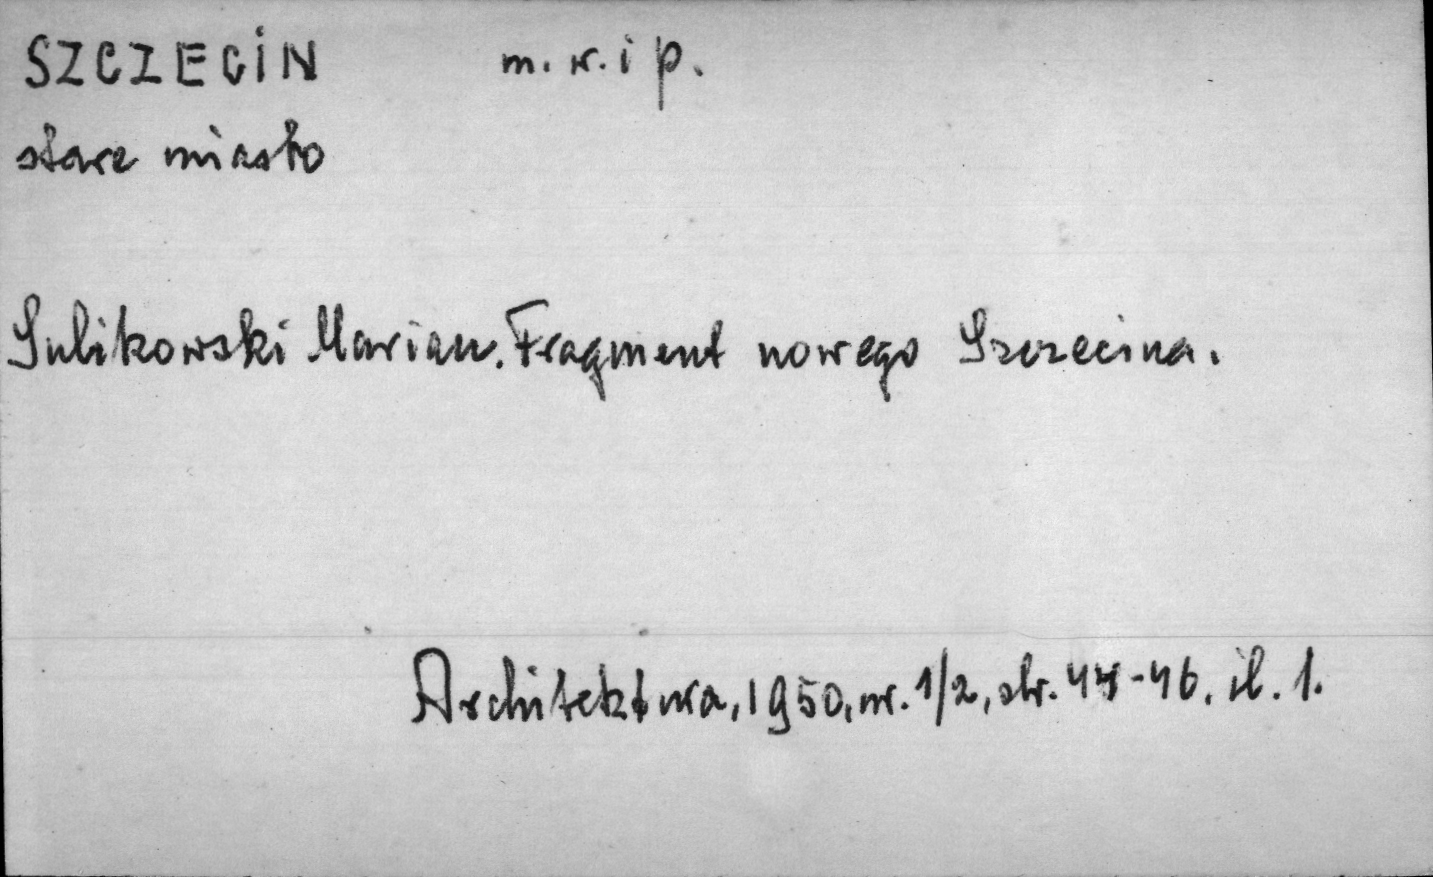 SZCZECIN m. w. i p.
stare miasto
Sulikowski Marian. Fragment nowego Szczecina.
Architektura, 1950, nr. 1/2, str. 44-46, il. 1.